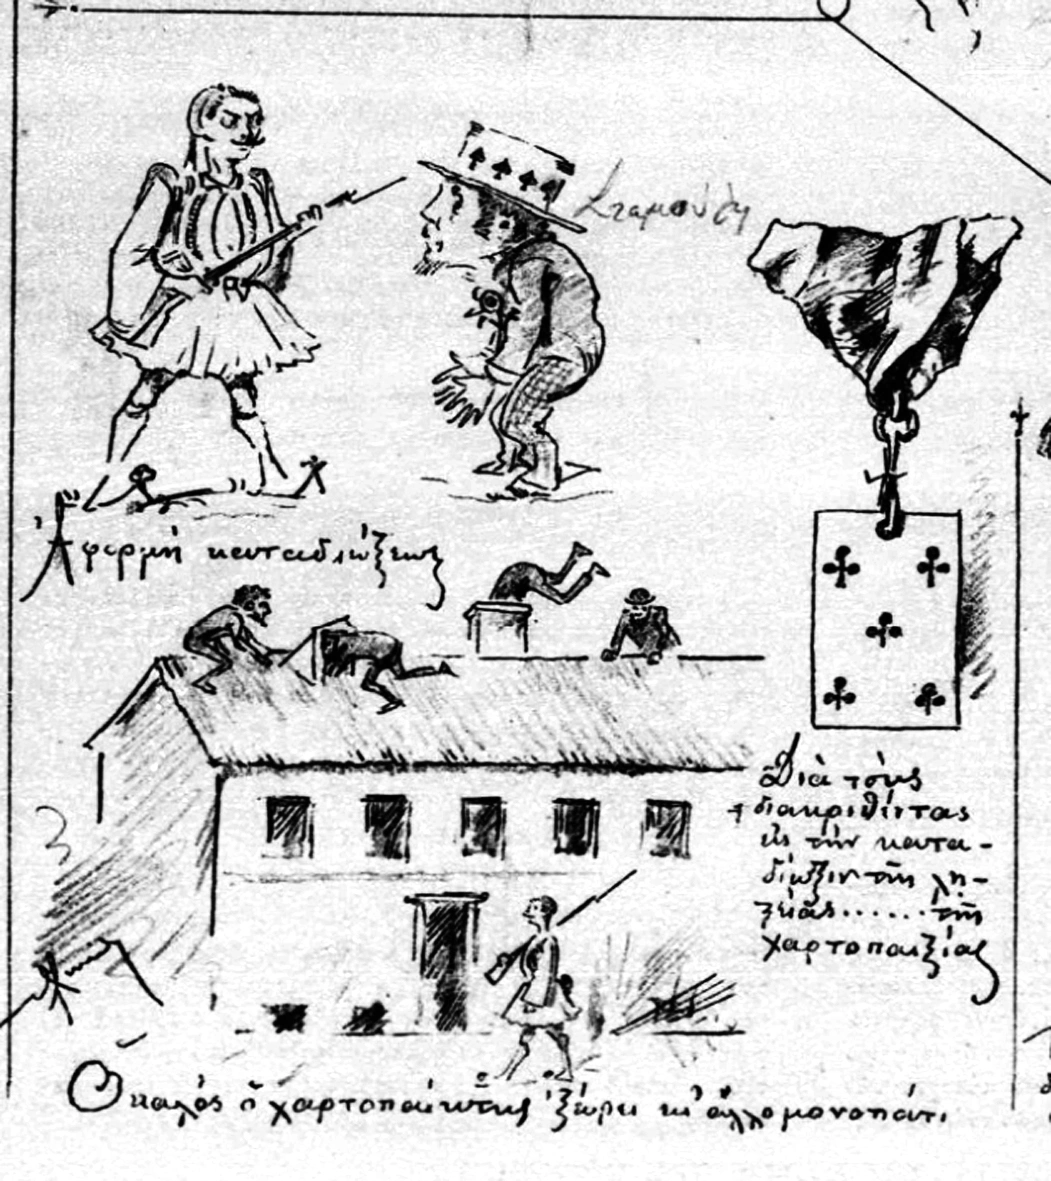 Ἀφορμὴ καταδιώξεως
Διὰ τοὺς
διακριθέντας
εἰς τὴν κατα-
δίωξιν τῆς λῃ-
στείας......τῆς
χαρτοπαιξίας
Ὁ καλὸς ὁ χαρτοπαίκτης 'ξεύρει κι' ἄλλο μονοπάτι